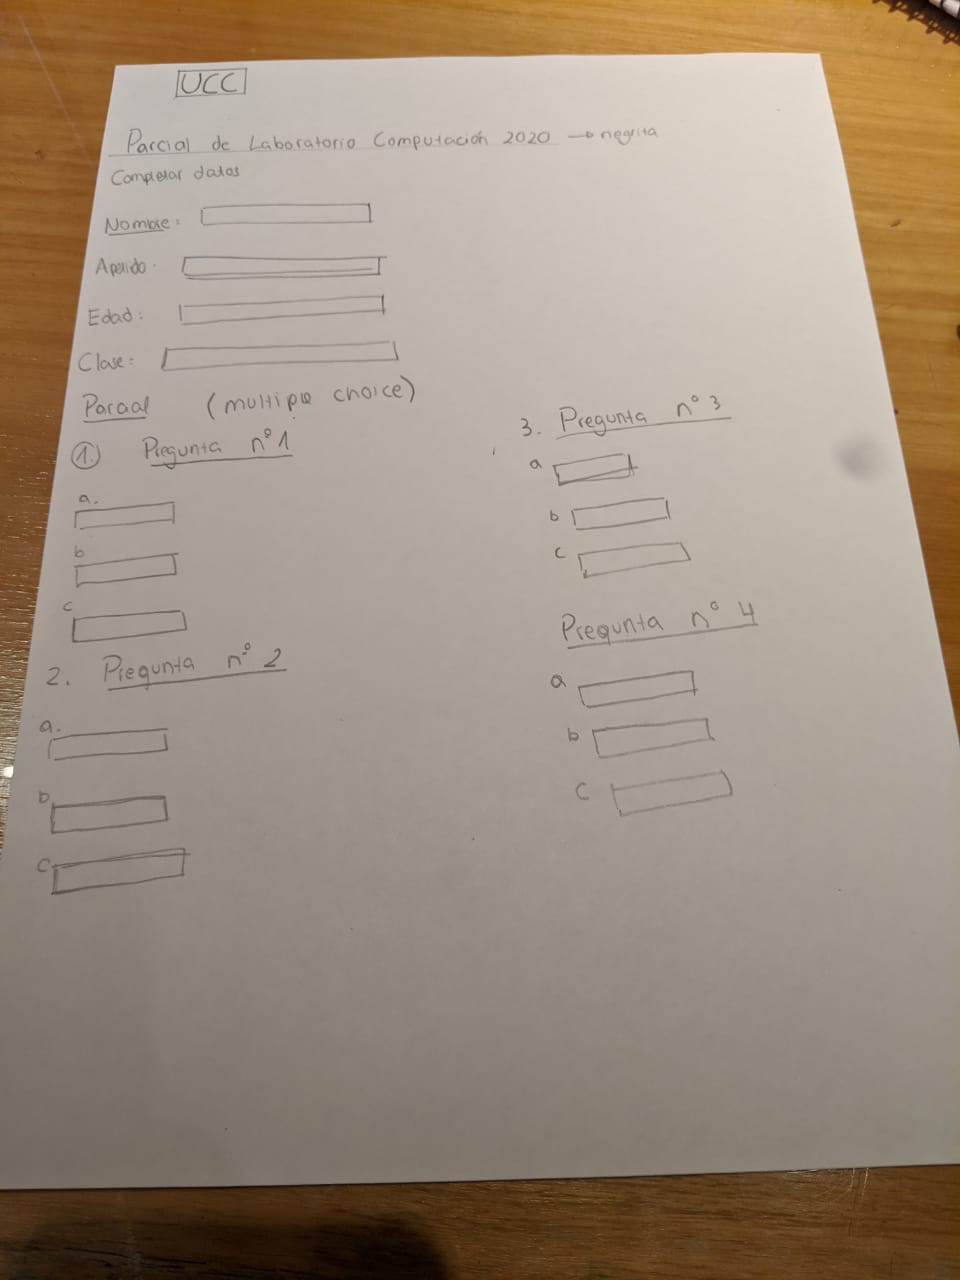 UCC
Parcial de Laboratorio Computación 2020 → negrita
Completar datos
Nombre:
Apellido:
Edad:
Clase:
Parcial (multiple choice)
1. Pregunta n°1
a.
b
c
2. Pregunta n° 2
a.
b
c
3. Pregunta n° 3
a
b
c
Pregunta n° 4
a
b
c